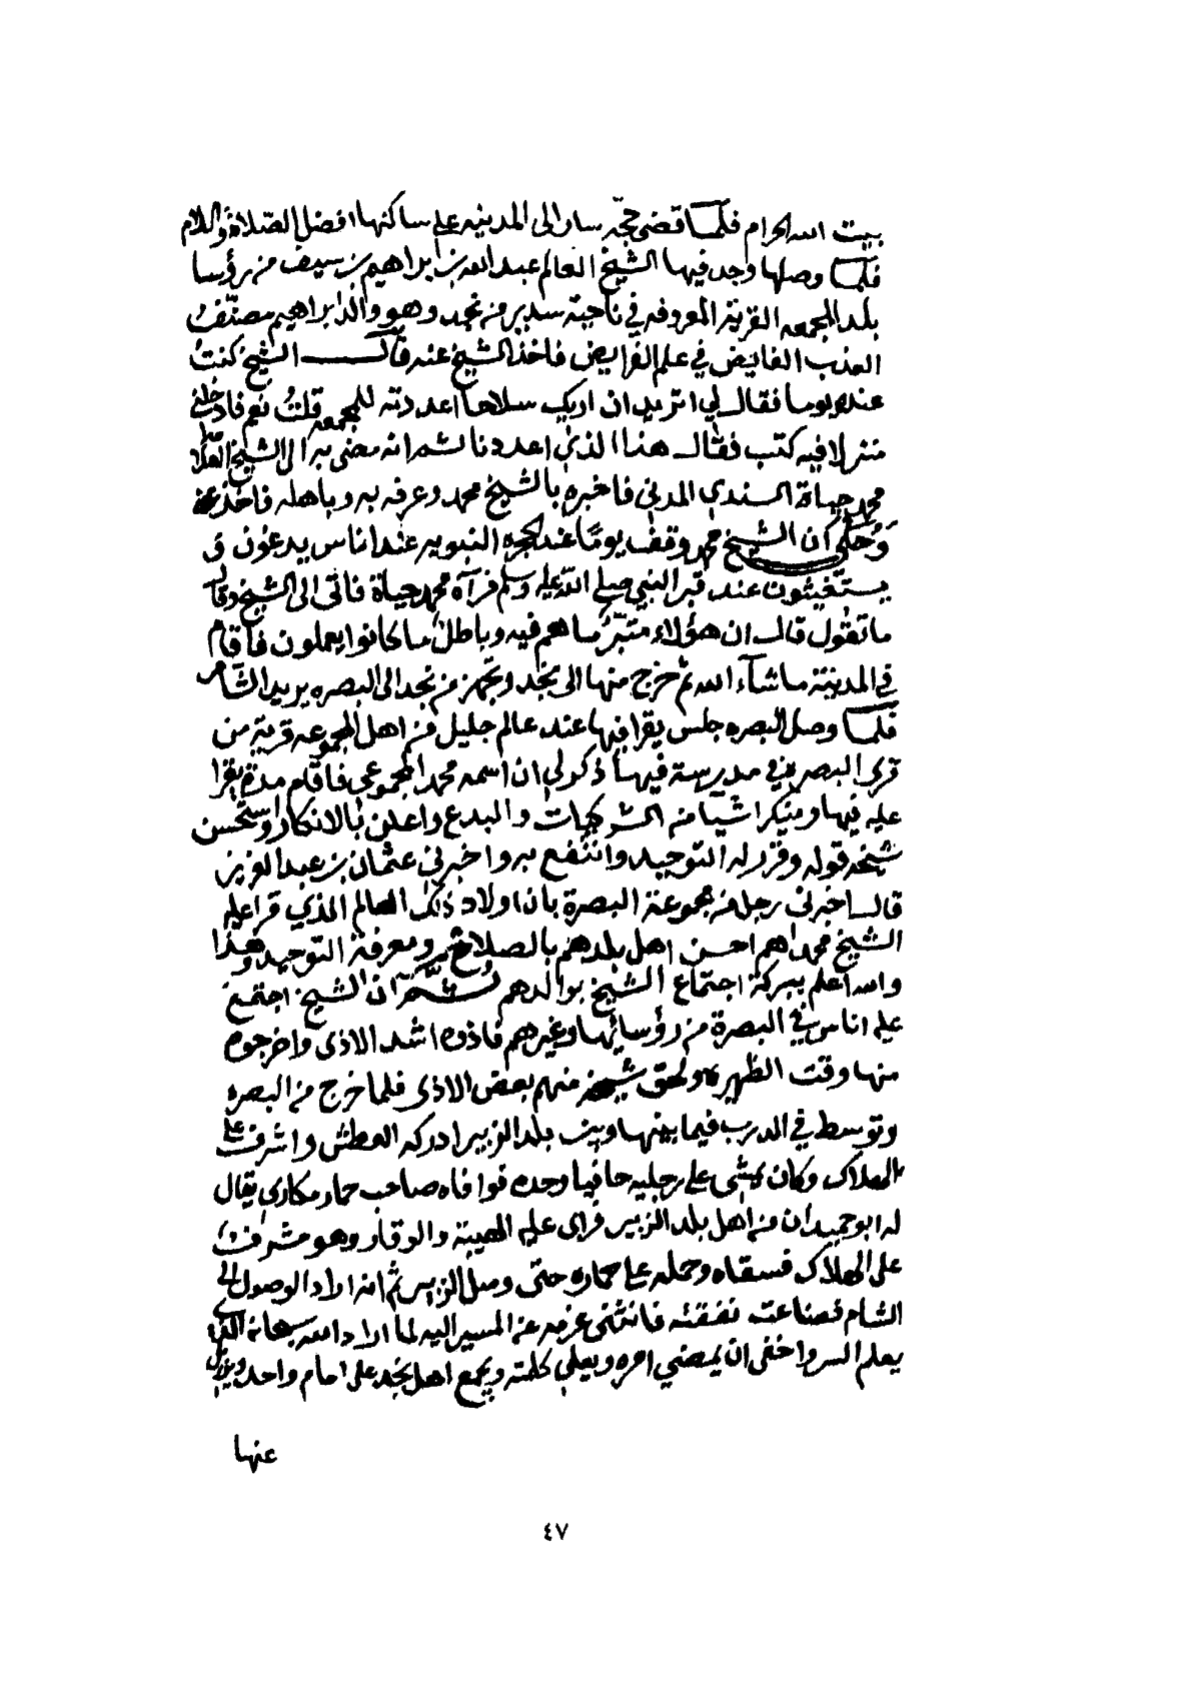 بيت الله الحرام فلما قضى حجه سار الى المدينه على ساكنها افضل الصلاة والسلام
فلما وصلها وجد فيها الشيخ العالم عبدالله بن ابراهيم بن سيف من رؤسا
بلد المجمعه القرية المعروفه في ناحية سدير من نجد وهو والد ابراهيم مصنف
العذب الفايض في علم الفرايض فاخذ الشيخ عنه قال الشيخ كنت
عنده يوما فقال لي اتريد ان اريك سلاحا اعددته للمجمعه قلت نعم فادخلني
منزلا فيه كتب فقال هذا الذي اعددنا لها ثم انه مضى به الى الشيخ العلامة
محمد حياة السندي المدني فاخبره بالشيخ محمد وعرفه به وباهله فاخذ عنه
وحكي ان الشيخ محمد وقف يوما عند الحجره النبويه عند اناس يدعون و
يستغيثون عند قبر النبي صلى الله عليه وسلم فرآه محمد حياة فاتى الى الشيخ وقال
ما تقول قال ان هؤلاء متبر ما هم فيه وباطل ما كانوا يعملون فاقام
في المدينة ما شآء الله ثم خرج منها الى نجد وتجهز من نجد الى البصره يريد الشام
فلما وصل البصره جلس يقرا فيها عند عالم جليل من اهل المجموعه قرية من
قرى البصرة في مدرسة فيها ذكر لي ان اسمه محمد المجموعي فاقام مدة يقرا
عليه فيها وينكر اشيآ من الشركيات والبدع واعلن بالانكار واستحسن
شيخه قوله وقرر له التوحيد وانتفع به واخبرني عثمان بن عبدالعزيز
قال اخبرني رجل من مجموعة البصرة بان اولاد ذلك العالم الذي قرا عليه
الشيخ محمد اهم احسن اهل بلدهم بالصلاح ومعرفة التوحيد وهذا
والله اعلم ببركة اجتماع الشيخ بوالدهم ثم ان الشيخ اجتمع
عليه اناس في البصرة من رؤسائها وغيرهم فاذوه اشد الاذى واخرجوه
منها وقت الظهيره ولحق شيخه منهم بعض الاذى فلما خرج من البصره
وتوسط في الدرب فيما بينها وبين بلد الزبير ادركه العطش واشرف على
الهلاك وكان يمشي على رجليه حافيا وحده فوافاه صاحب حمار مكاري يقال
له ابو حميدان من اهل بلد الزبير فراى عليه الهيبة والوقار وهو مشرف
على الهلاك فسقاه وحمله على حماره حتى وصل الزبير ثم انه اراد الوصول الى
الشام فضاعت نفقته فانثنى عزمه عن المسير اليه لما اراد الله سبحانه الذي
يعلم السر واخفى ان يمضي امره ويعلي كلمته ويجمع اهل نجد على امام واحد ويزيل
عنها
٤٧